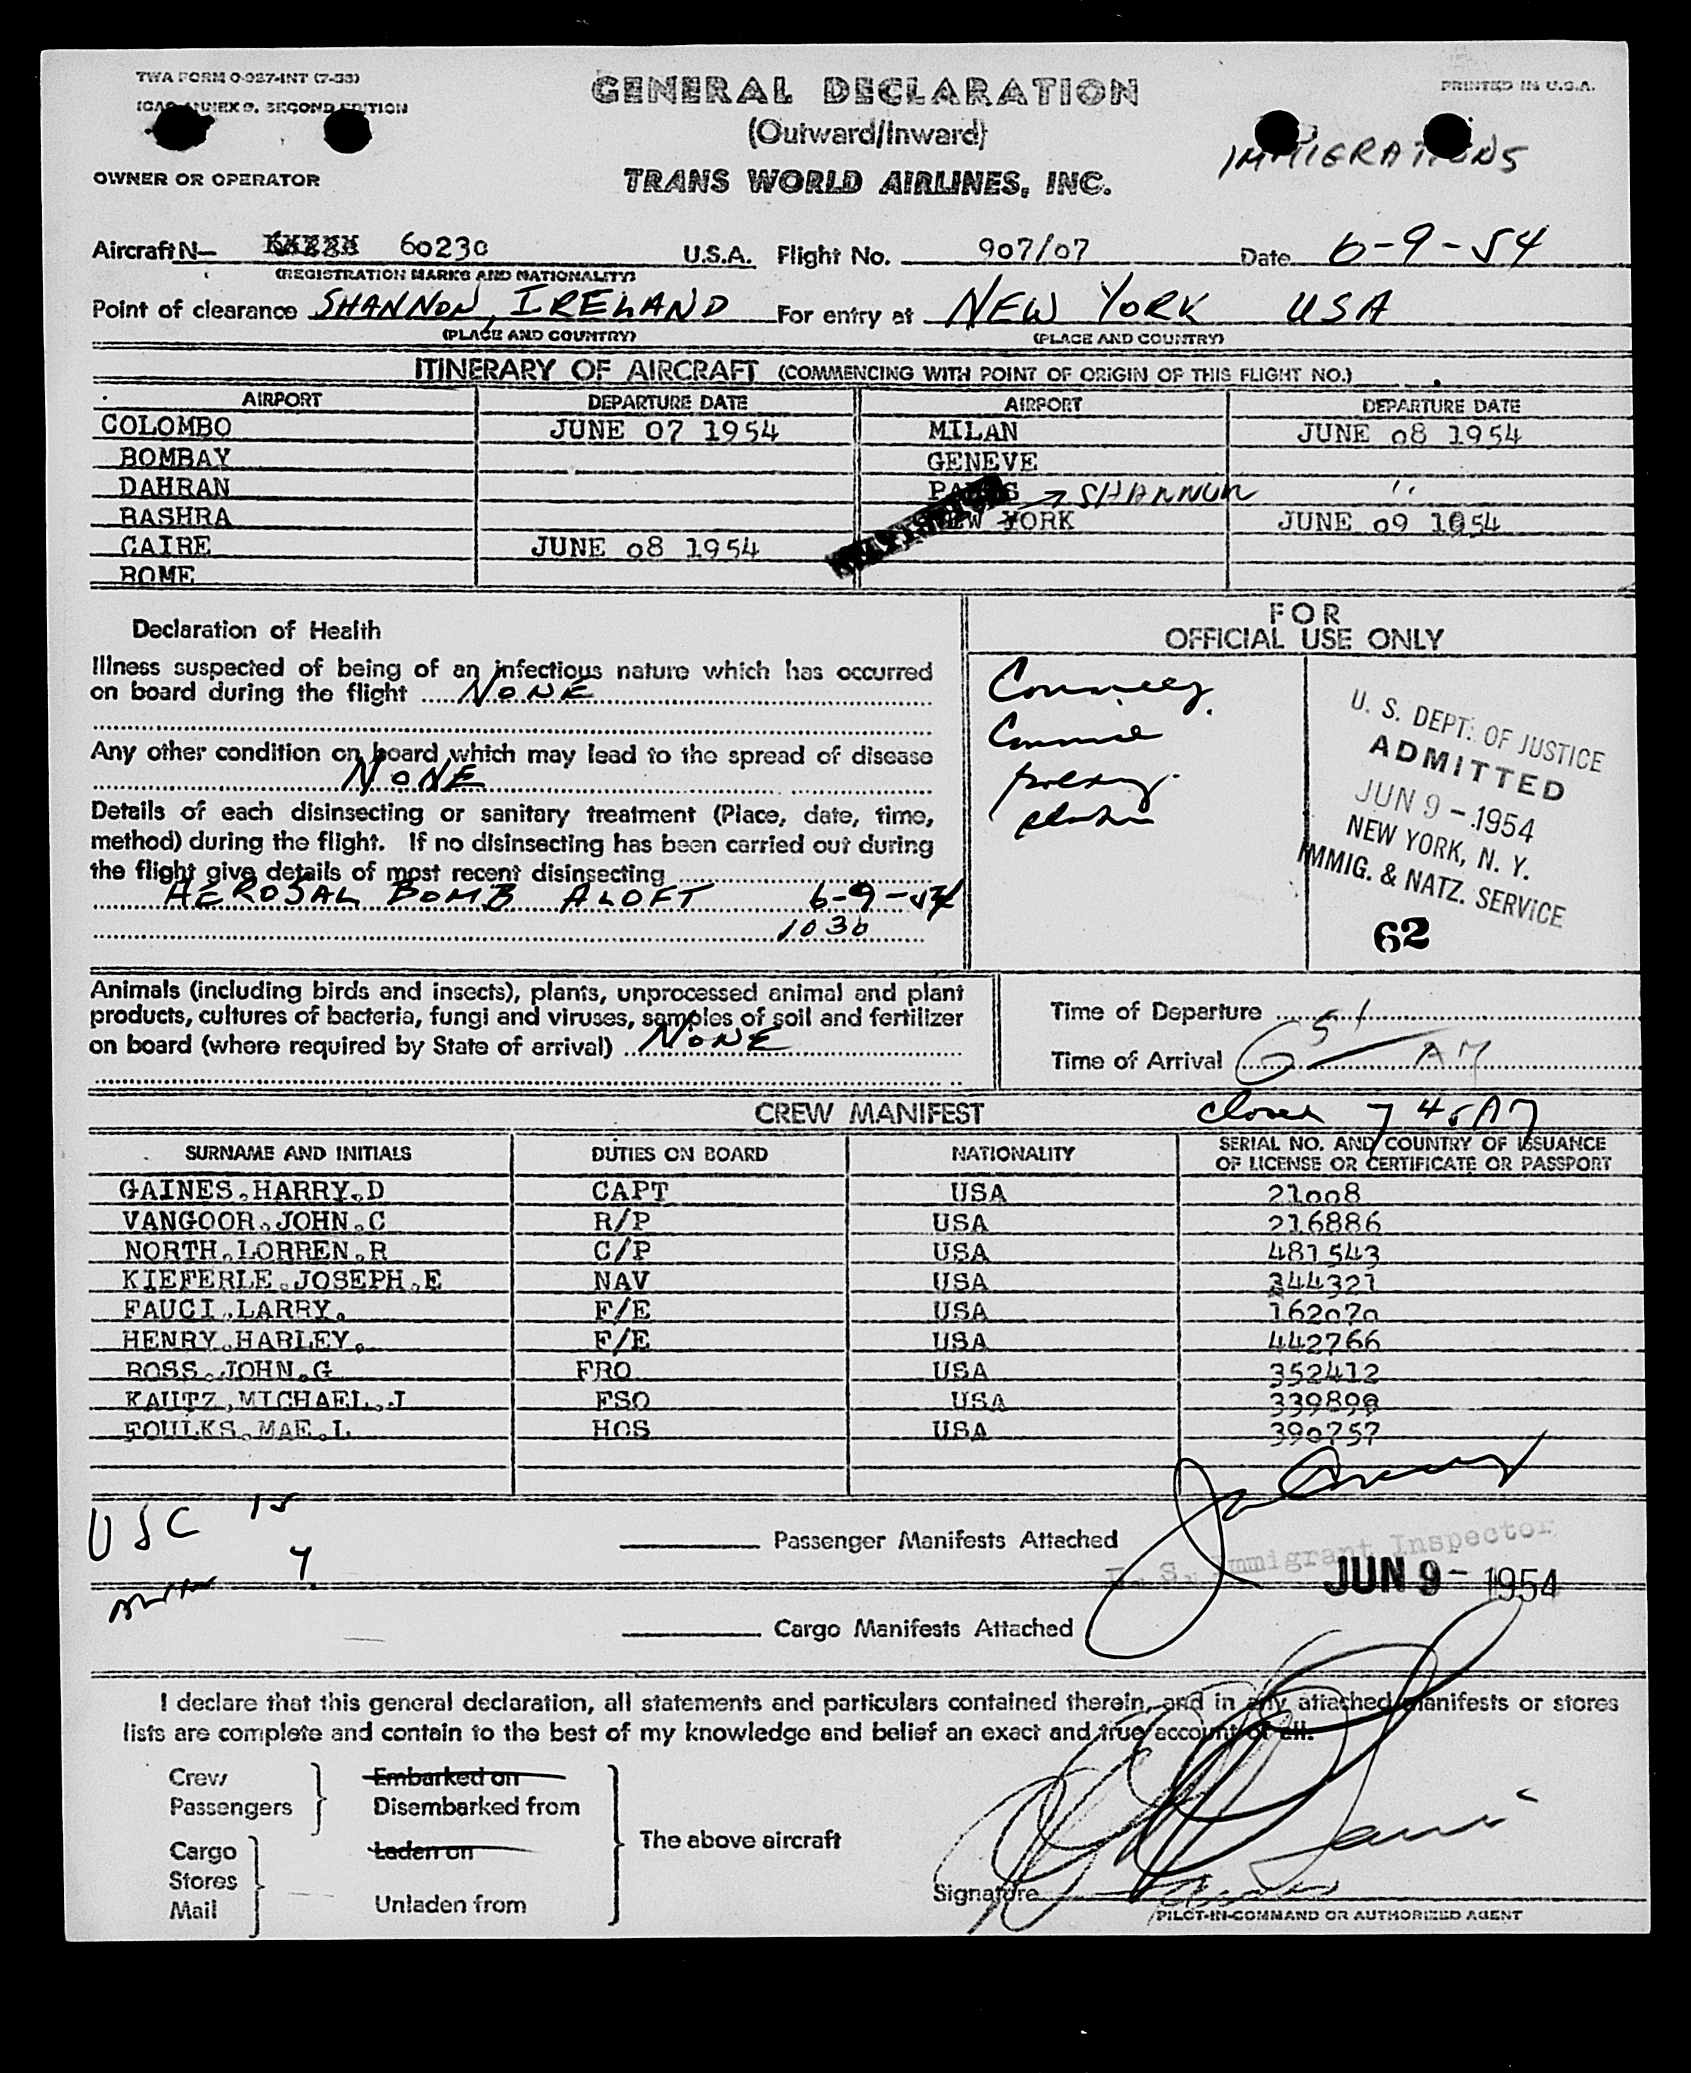 TWA FORM O-927-INT (7-53)
ICAO ANNEX 9, SECOND EDITION
GENERAL DECLARATION
PRINTED IN U.S.A.
(Outward/Inward)
IMMIGRATIONS
OWNER OR OPERATOR
TRANS WORLD AIRLINES, INC.
Aircraft N— 60230 U.S.A. Flight No. 907/07 Date 6-9-54
(REGISTRATION MARKS AND NATIONALITY)
Point of clearance SHANNON, IRELAND For entry at NEW YORK USA
(PLACE AND COUNTRY) (PLACE AND COUNTRY)
ITINERARY OF AIRCRAFT (COMMENCING WITH POINT OF ORIGIN OF THIS FLIGHT NO.)
AIRPORT DEPARTURE DATE AIRPORT DEPARTURE DATE
COLOMBO JUNE 07 1954 MILAN JUNE 08 1954
BOMBAY GENEVE
DAHRAN PARIS SHANNON "
BASHRA NEW YORK JUNE 09 1954
CAIRE JUNE 08 1954
ROME
Declaration of Health
FOR
OFFICIAL USE ONLY
Illness suspected of being of an infectious nature which has occurred
on board during the flight NONE
Any other condition on board which may lead to the spread of disease
NONE
Details of each disinsecting or sanitary treatment (Place, date, time,
method) during the flight. If no disinsecting has been carried out during
the flight give details of most recent disinsecting
AEROSAL BOMB ALOFT 6-9-54
1030
U. S. DEPT. OF JUSTICE
ADMITTED
JUN 9 - 1954
NEW YORK, N. Y.
IMMIG. & NATZ. SERVICE
62
Animals (including birds and insects), plants, unprocessed animal and plant
products, cultures of bacteria, fungi and viruses, samples of soil and fertilizer
on board (where required by State of arrival) NONE
Time of Departure
Time of Arrival AM
CREW MANIFEST
closed 7 45 AM
SURNAME AND INITIALS DUTIES ON BOARD NATIONALITY SERIAL NO. AND COUNTRY OF ISSUANCE
OF LICENSE OR CERTIFICATE OR PASSPORT
GAINES.HARRY.D CAPT USA 21008
VANGOOR.JOHN.C R/P USA 216886
NORTH.LORREN.R C/P USA 481543
KIEFERLE.JOSEPH.E NAV USA 344321
FAUCI.LARRY. F/E USA 162070
HENRY.HARLEY. F/E USA 442766
ROSS.JOHN.G FRO USA 352412
KAUTZ.MICHAEL.J FSO USA 339899
FOULKS.MAE.L HOS USA 390757
USC 15
7
Passenger Manifests Attached
U. S. Immigrant Inspector
JUN 9 - 1954
Cargo Manifests Attached
I declare that this general declaration, all statements and particulars contained therein, and in any attached manifests or stores
lists are complete and contain to the best of my knowledge and belief an exact and true account of all.
Crew
Passengers
Embarked on
Disembarked from
Cargo
Stores
Mail
Laden on
Unladen from
The above aircraft
Signature
PILOT-IN-COMMAND OR AUTHORIZED AGENT